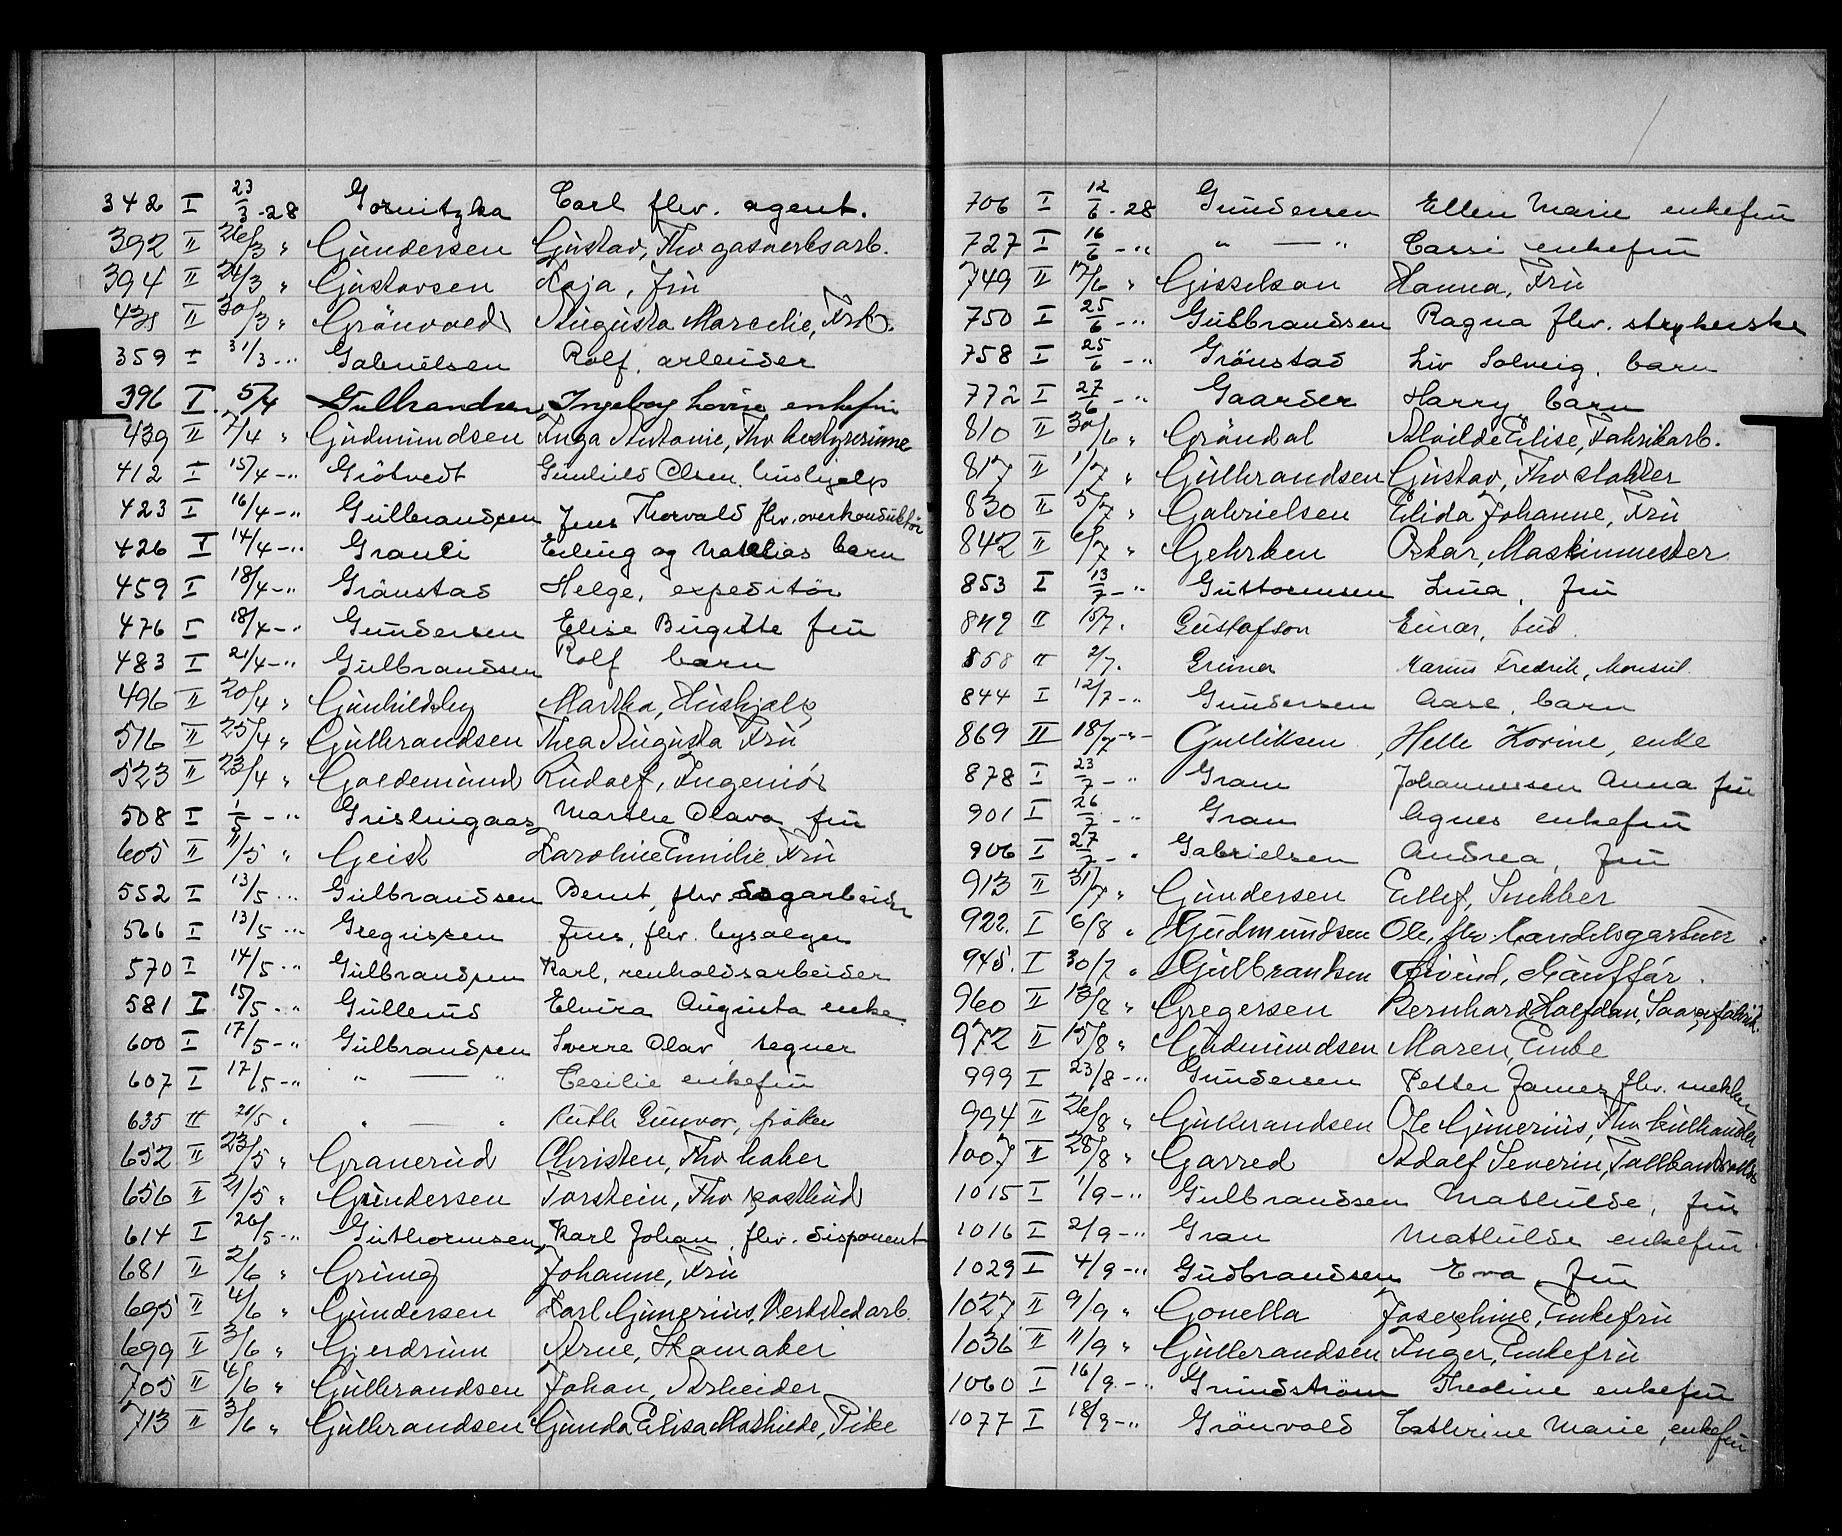 342 I 23/3-28 Gornitzka Carl fhv. agent.
392 II 26/3 " Gundersen Gustav, Fhv gasverksarb.
394 II 24/3 " Gustavsen Kaja, Frü
431 II 30/3 " Grönvold Augusta Marechie, Frk.
359 I 31/3-" Gabrielsen Rolf, arbeider
396 I 5/4 Gulbrandsen, Ingeborg Lovise enkefru
439 II 7/4 " Gudmundsen Inga Antonie, Fhv bestyrerinne
412 I 15/4-" Grötvedt Gunhild Olsen, hushjelp
423 I 16/4-" Gulbrandsen Jens Thorvald fhv. overkonduktör
426 I 14/4-" Grauli Erling og Mathias barn
459 I 18/4-" Grönstad Helge, expeditör
476 I 18/4-" Gundersen Elise Birgitte fru
483 I 21/4-" Gulbrandsen Rolf barn
496 II 20/4 " Gunhildsby Martha, Hushjelp
516 II 25/4 " Gulbrandsen Thea Augusta Frü
523 II 23/4 " Goldemund Rudolf, Ingeniör
508 I 1/5-" Grislingaas Marthe Olava fru
605 II 11/5 " Geist Karoline Emilie, Frü
552 I 13/5-" Gulbrandsen Bernt, fhv. sagarbeider
566 I 13/5-" Gregussen Jens, fhv. byselger
570 I 14/5-" Gulbrandsen Karl, renholdsarbeider
581 I 15/5-" Gullerud Elvira Augusta enke
600 I 17/5-" Gulbrandsen Sverre Olav, tegner
607 I 17/5-" " — " Cecilie enkefru
635 II 20/5 " " — " Ruth Gunvor, frøken
652 II 23/5 " Granerud Christen, Fhv baker
656 II 21/5 " Gundersen Torstein, Fhv postbud
614 I 26/5-" Guthormsen, Karl Johan, fhv. disponent
681 II 2/6 " Gring Johanne, Frü
695 II 4/6 " Gundersen Karl Gunerius, Verkstedarb.
699 II 3/6 " Gjerdrum Arne, Skomaker
705 II 4/6 " Gulbrandsen Johan, Arbeider
713 II 3/6 " Gulbrandsen Gunda Elisa Mathilde, Pike
706 I 12/6-28 Gundersen Ellen Marie enkefru
727 I 16/6-" " — " Cassi enkefru
749 II 17/6 " Gisselson Hanna, Frü
750 I 25/6-" Gulbrandsen Ragna fhv. strykerske
758 I 25/6-" Grönstad Liv Solveig, barn
772 I 27/6-" Gaarder Harry barn
810 II 30/6 " Gröndal Alvilde Elise, Fabrikarb.
817 II 1/7 " Gulbrandsen Gustav, Fhv slakter
830 II 5/7 " Gabrielsen Elida Johanne, Frü
842 II 6/7 " Gehrken Oskar, Maskinmester
853 I 13/7-" Guttormsen Lina, fru
849 II 15/7. Gustafson Einar, bud.
858 II 2/7. Griner Marius Fredrik, Konsul.
844 I 12/7-" Gundersen Aase, barn
869 II 18/7-"- Gulliksen, Helle Korine, enke
878 I 23/7-" Gram Johannessen Anna fru
901 I 26/7-" Gran Agnes enkefru
906 I 27/7-" Gabrielsen Andrea, fru
913 II 31/7 " Gundersen Ellef, Snekker
922. I 6/8 " Gudmundsen Ole, fhv. handelsgartner
945. I 30/7 " Gulbrandsen Eivind, Chauffør.
960 II 13/8 " Gregersen Bernhard Halfdan,
972 II 15/8 " Gudmundsen Maren, Enke
999 I 23/8-" Gundersen Petter James, fhv. snekker
994 II 26/8 " Gulbrandsen Ole Gunerius, Fhv kulhandler
1007 II 28/8 " Garred Adolf Severin,
1015 I 1/9-" Gulbrandsen Mathilde, fru
1016 I 2/9-" Gran Mathilde enkefru
1029 I 4/9-" Gudbrandsen Eva, fru
1027 II 9/9 " Gonella Josephine, Enkefrü
1036 II 11/9 " Gulbrandsen Inger, Enkefrü
1060 I 16/9-" Grundström Theoline enkefru
1077 I 18/9-" Grönvold Cathrine Marie, enkefru